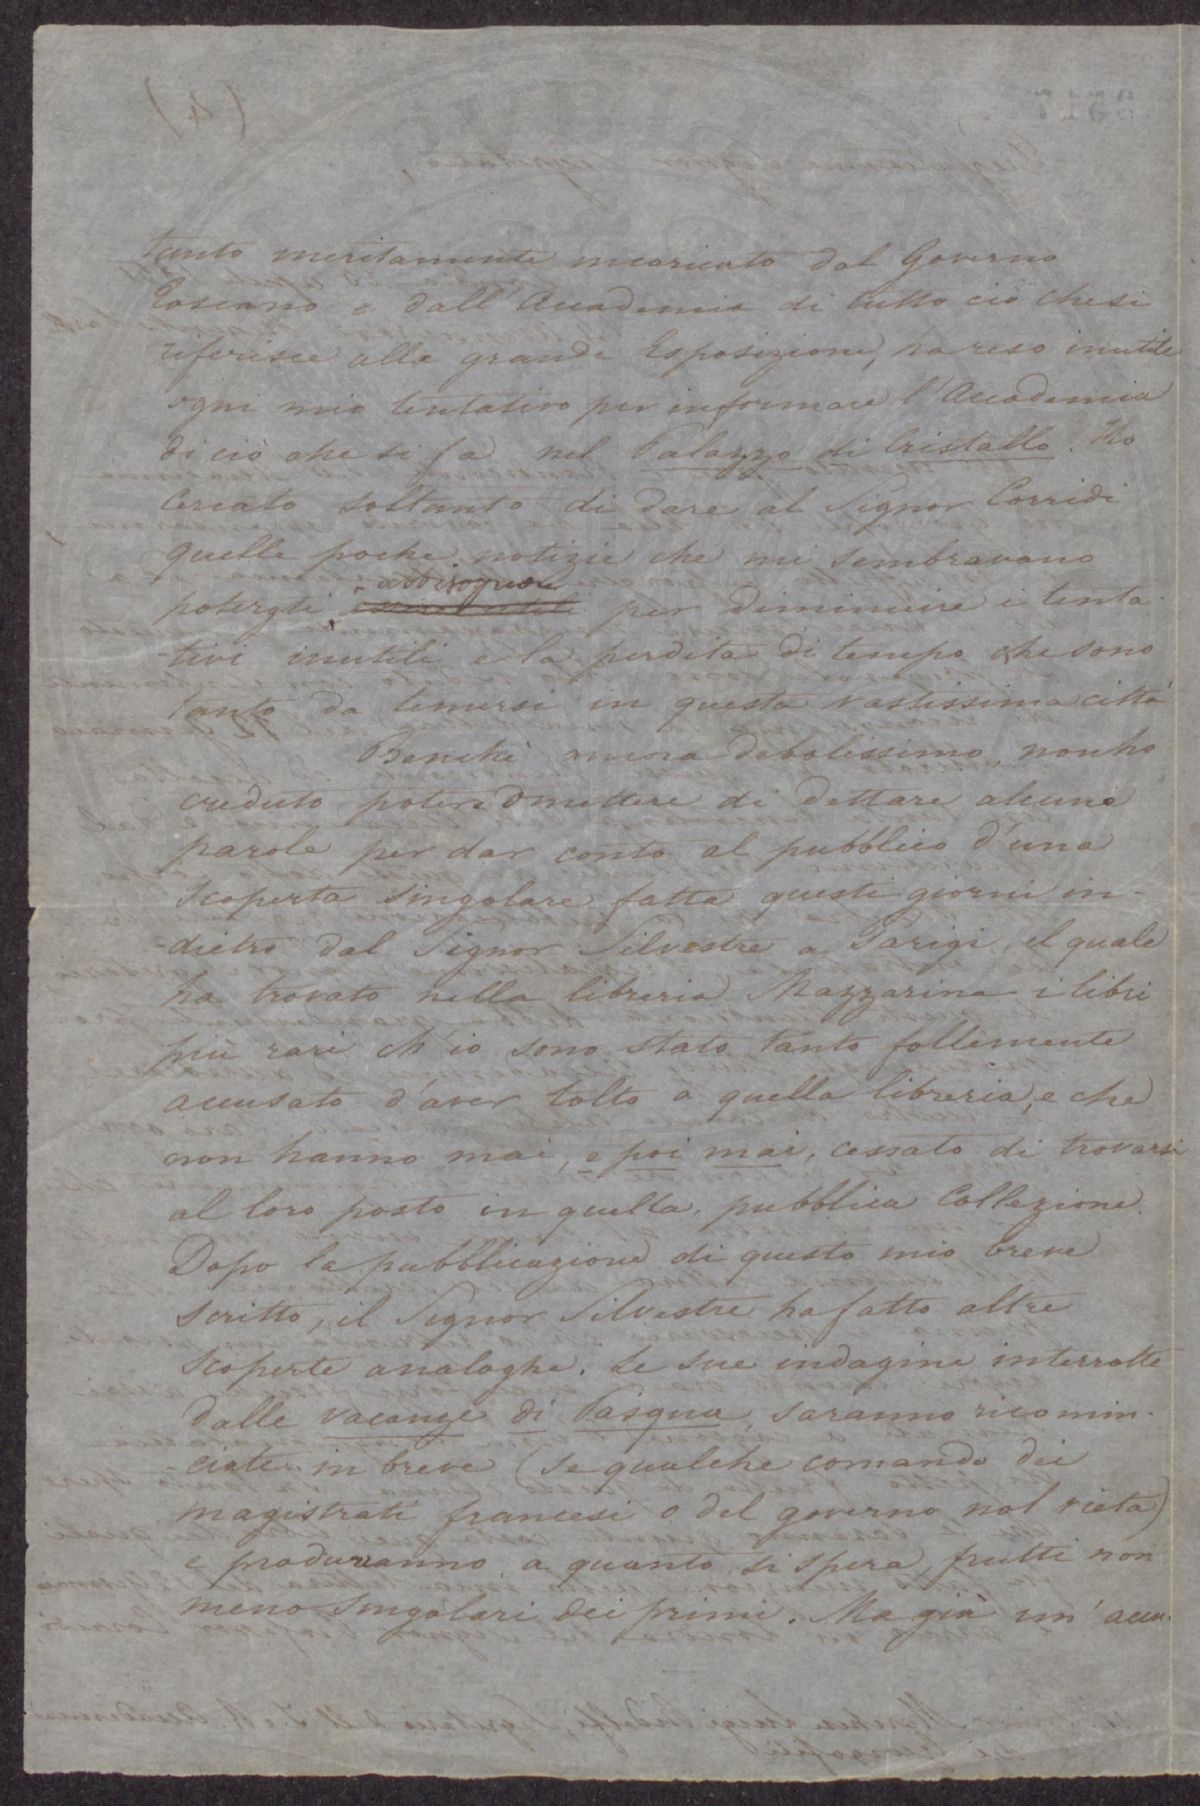 tanto meritamente incaricato dal Governo
Toscano e dall'Accademia di tutto ciò che si
riferisce alla grande Esposizione, ha reso inutile
ogni mio tentativo per informare l'Accademia
di ciò che si fa nel Palazzo di Cristallo. Ho
cercato soltanto di dare al Signor Corridi
quelle poche notizie che mi sembravano
abbisognare
potergli per diminuire i tenta-
-tivi inutili e la perdita di tempo che sono
tanto da temersi in questa vastissima città
Benchè ancora debolissimo, non ho
creduto potere omettere di dettare alcune
parole per dar conto al pubblico d'una
scoperta singolare fatta questi giorni in-
-dietro dal Signor Silvestre a Parigi, el quale
ha trovato nella libreria Mazzarina i libri
più rari ch'io sono stato tanto follemente
accusato d'aver tolto a quella libreria, e che
non hanno mai, e poi mai, cessato di trovarsi
al loro posto in quella pubblica Collezione.
Dopo la pubblicazione di questo mio breve
scritto, il Signor Silvestre ha fatto altre
scoperte analoghe. Le sue indagine interrotte
dalle vacanze di Pasqua, saranno ricomin-
ciate in breve (se qualche comando dei
magistrati francesi o del governo nol vieta)
e produrranno, a quanto si spera, frutti non
meno singolari dei primi. Ma già un' accu-